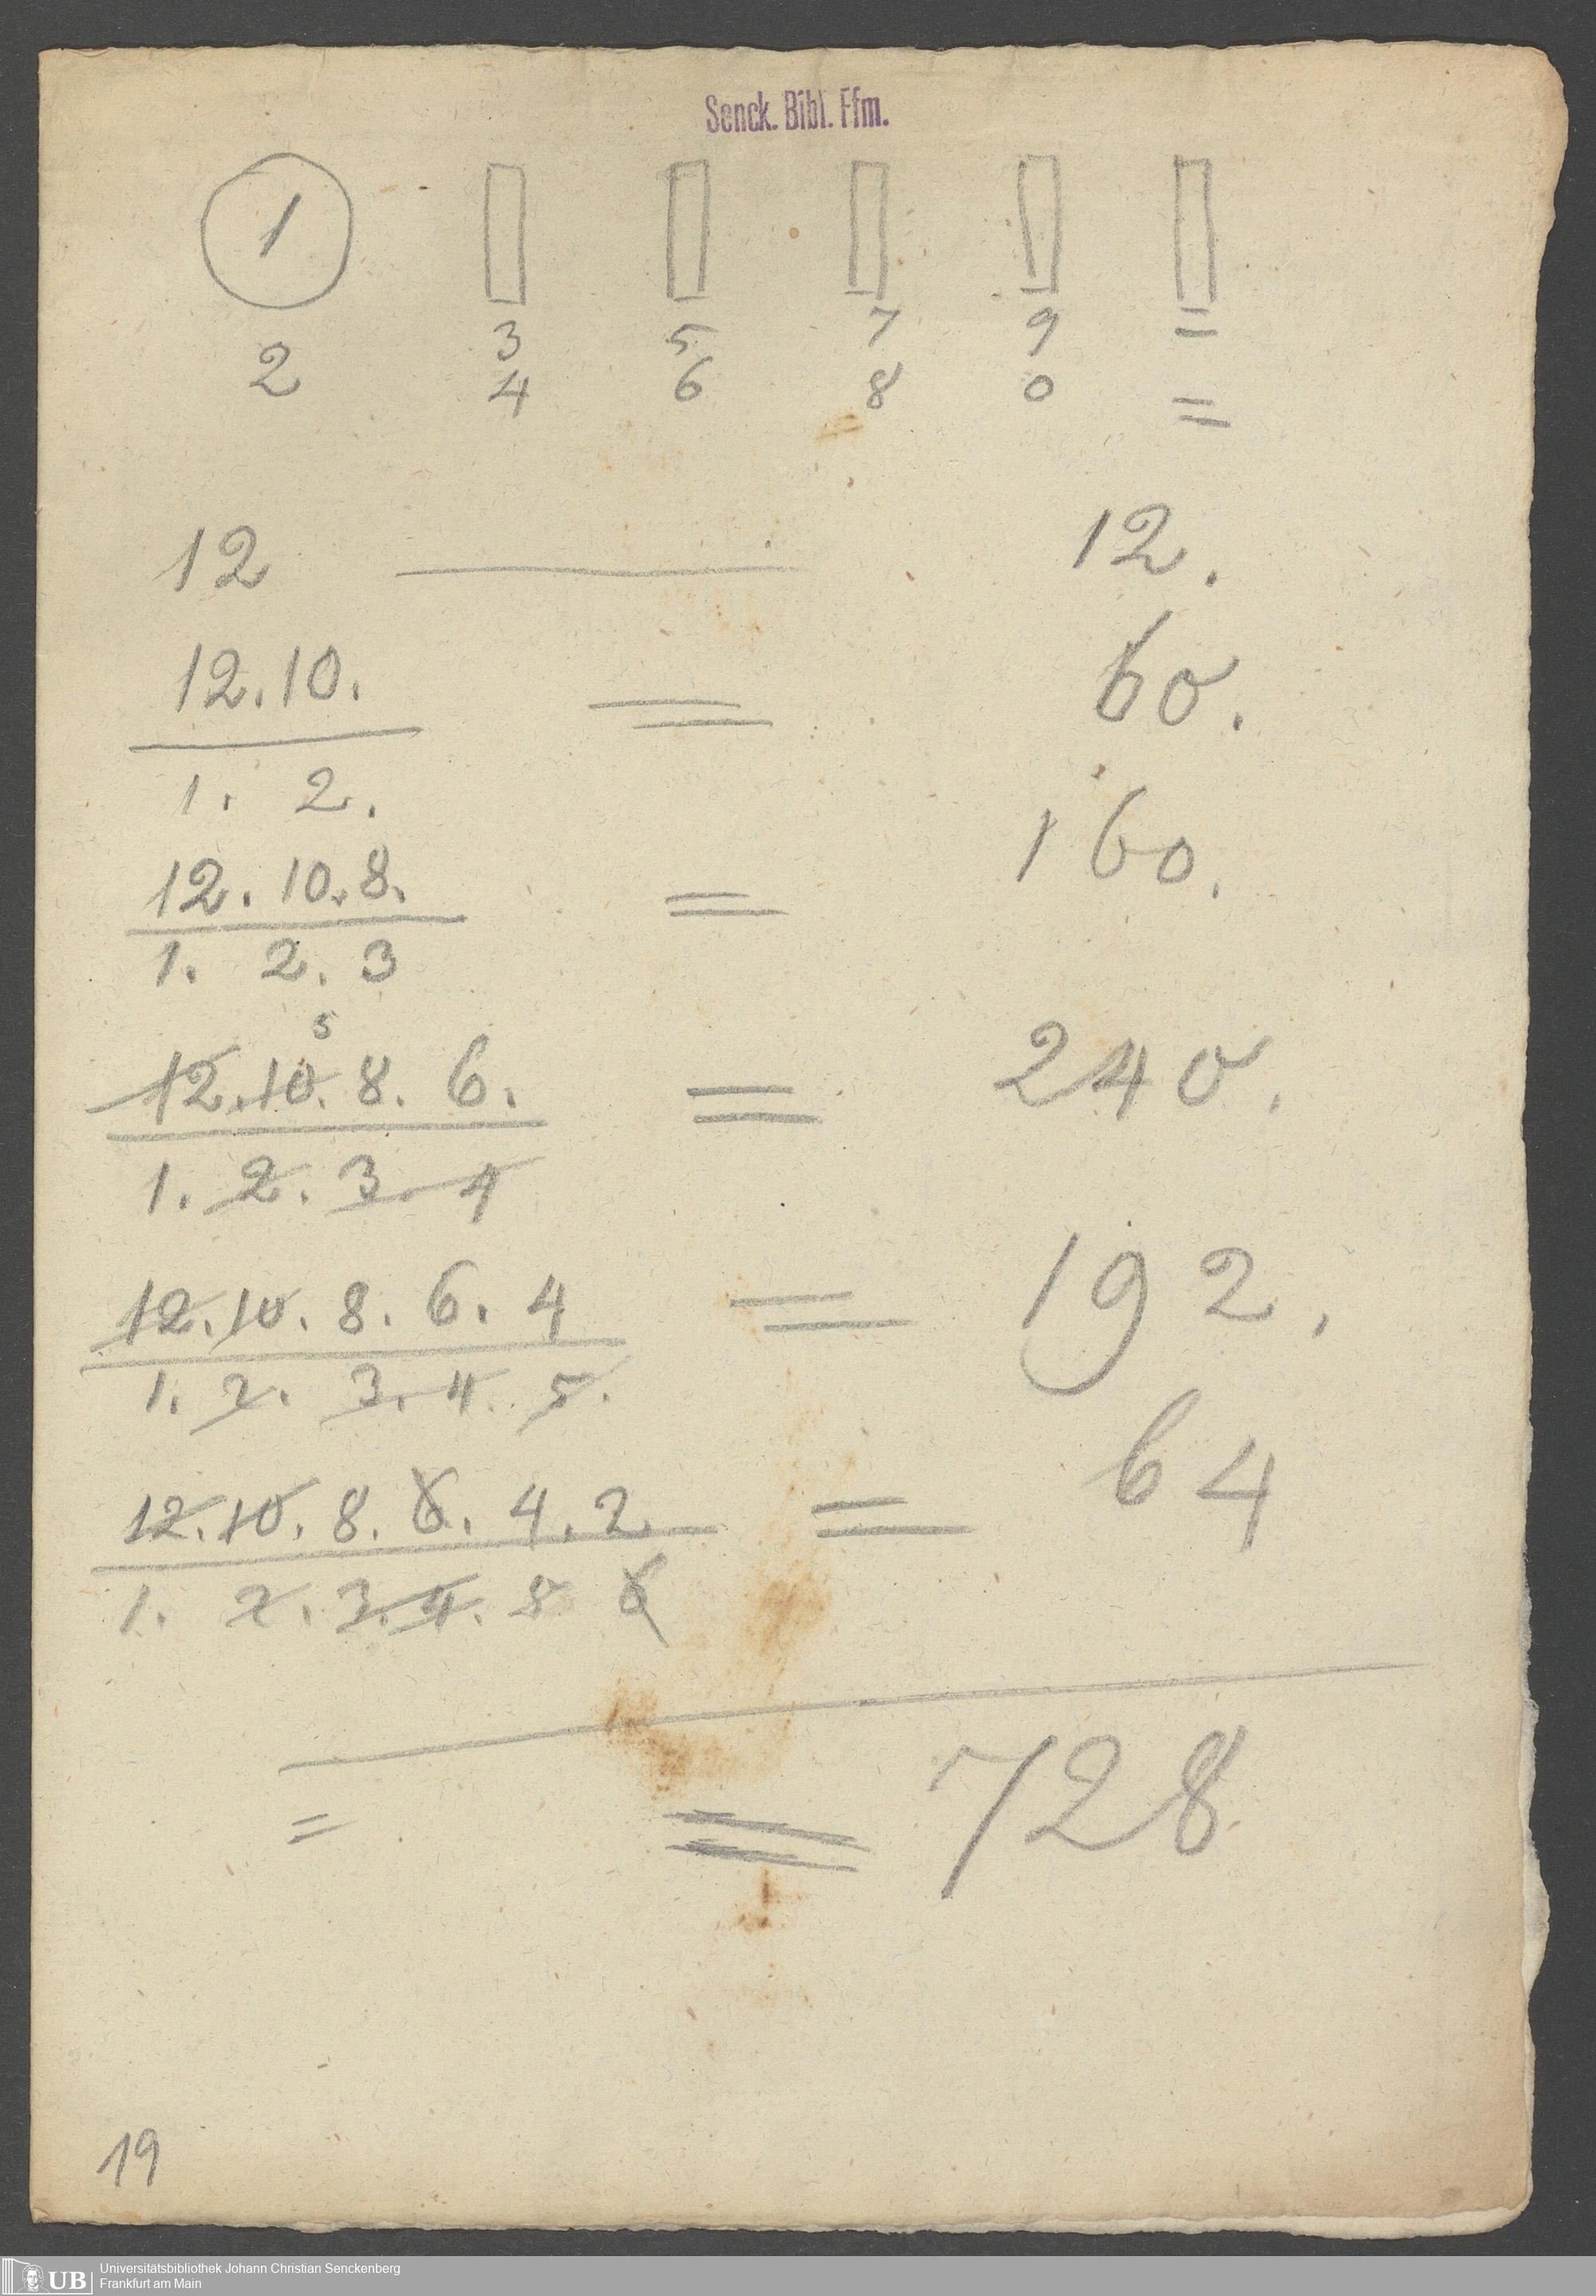 Senck. Bibl. Ffm.
1
3 5 7 9 =
2 4 6 8 0 =
12 — 12.
12.10. = 60.
1. 2.
12. 10. 8. = 160.
1. 2. 3
5
12. 10. 8. 6. = 240.
1. 2. 3. 4
12. 10. 8. 6. 4 = 192.
1. 2. 3. 4. 5.
12. 10. 8. 6. 4. 2 = 64
1. 2. 3. 4. 5 6
= = 728
19
UB
Universitätsbibliothek Johann Christian Senckenberg
Frankfurt am Main